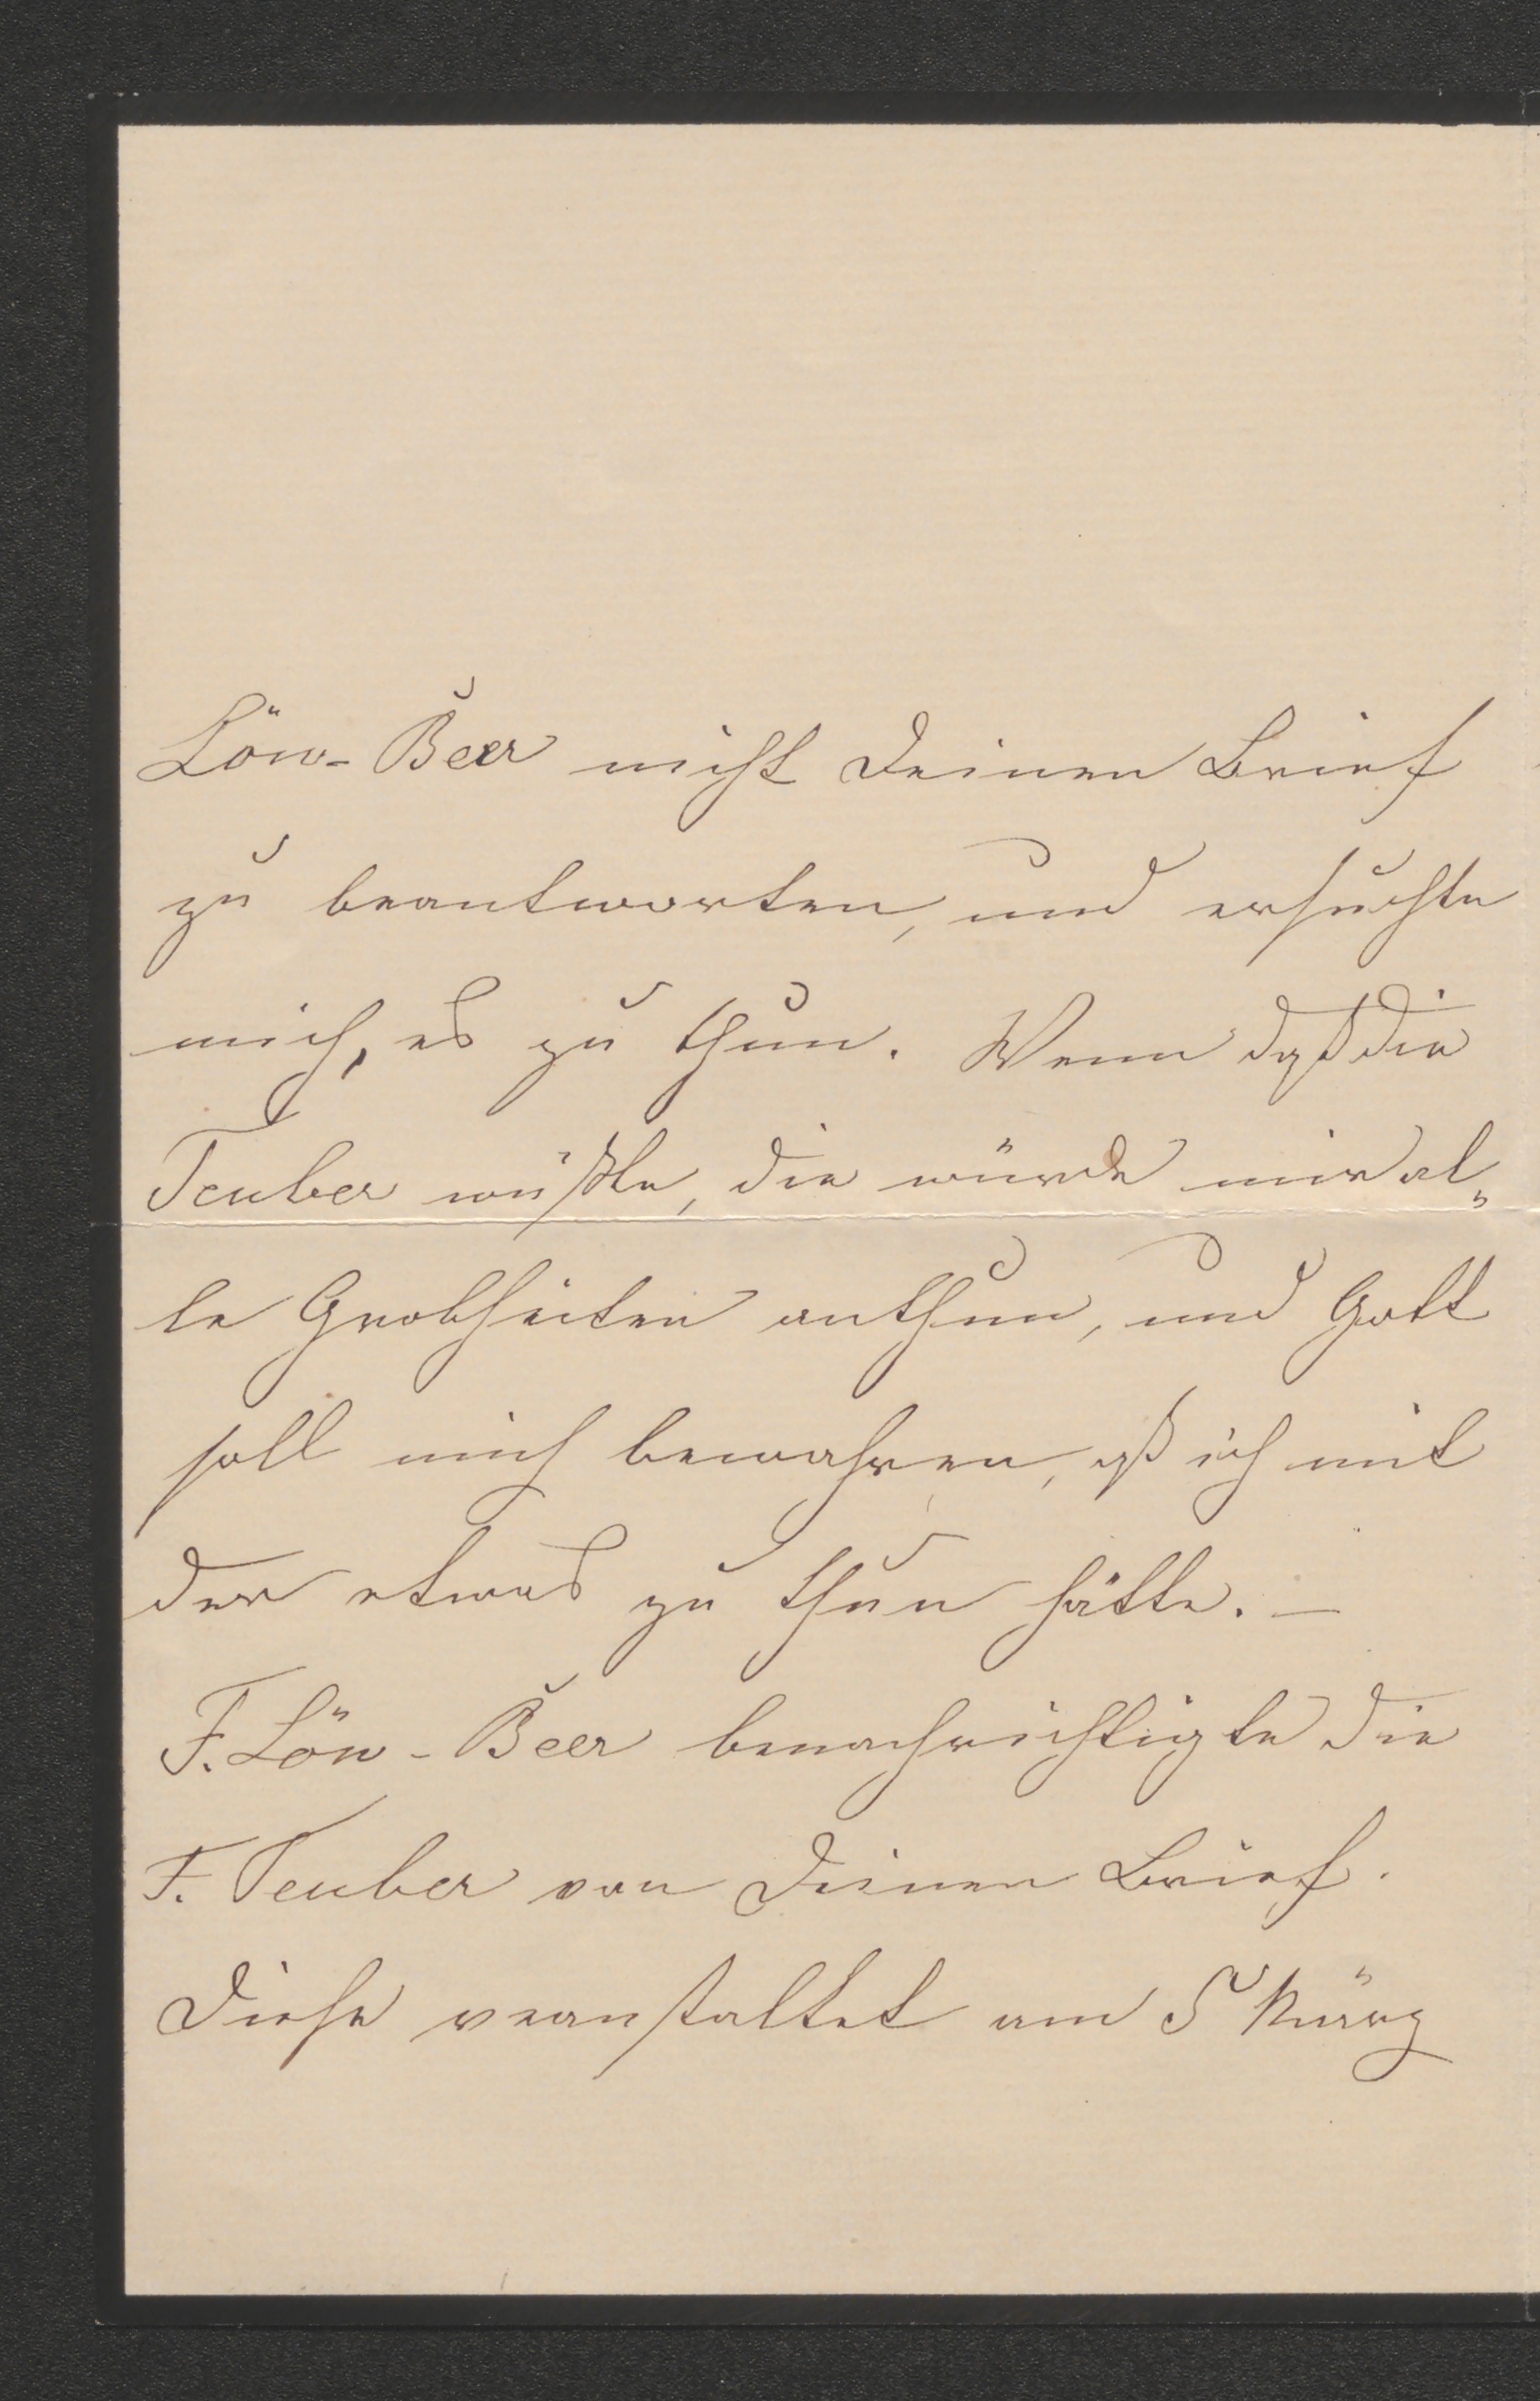 Löw-Beer nicht Deinen Brief
zu beantworten, und ersuchte
mich, es zu thun. Wenn daß die
Teuber wüßte, die würde mir al„
le Grobheiten anthun, und Gott
soll mich bewahren, aß ich mit
der etwas zu thun hätte. —
F. Löw-Beer benachrichtigte die
F. Teuber von Deinen Brief.
Diese veranstaltet am 5 März